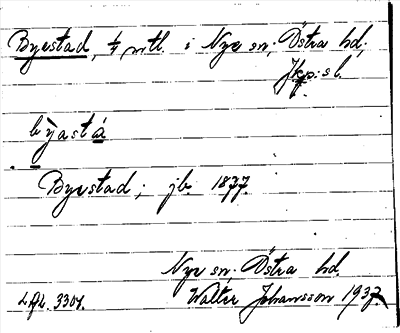 Byestad, 1/4 mtl. i Nye sn, Östra hd,
Jkp:s l.
by̌astá
Byestad; jb. 1877.
Nye sn. Östra hd.
Walter Johansson 1937.